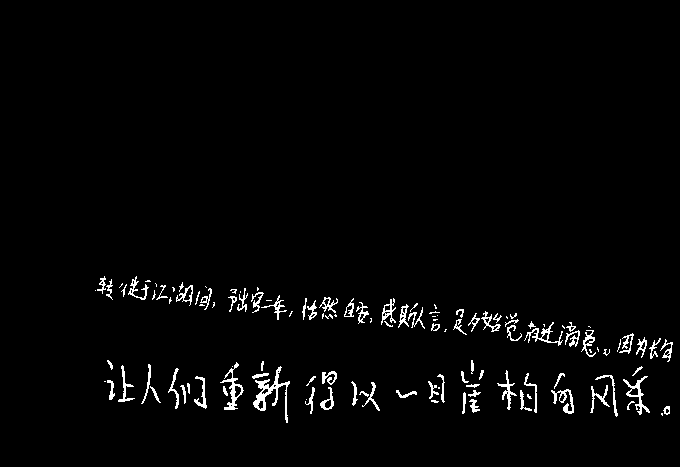 转徙于江湖间,予出官二年,恬然自安,感斯人言,是夕始觉有迁谪意。因为长句
让人们重新得以一目崖柏的风采。